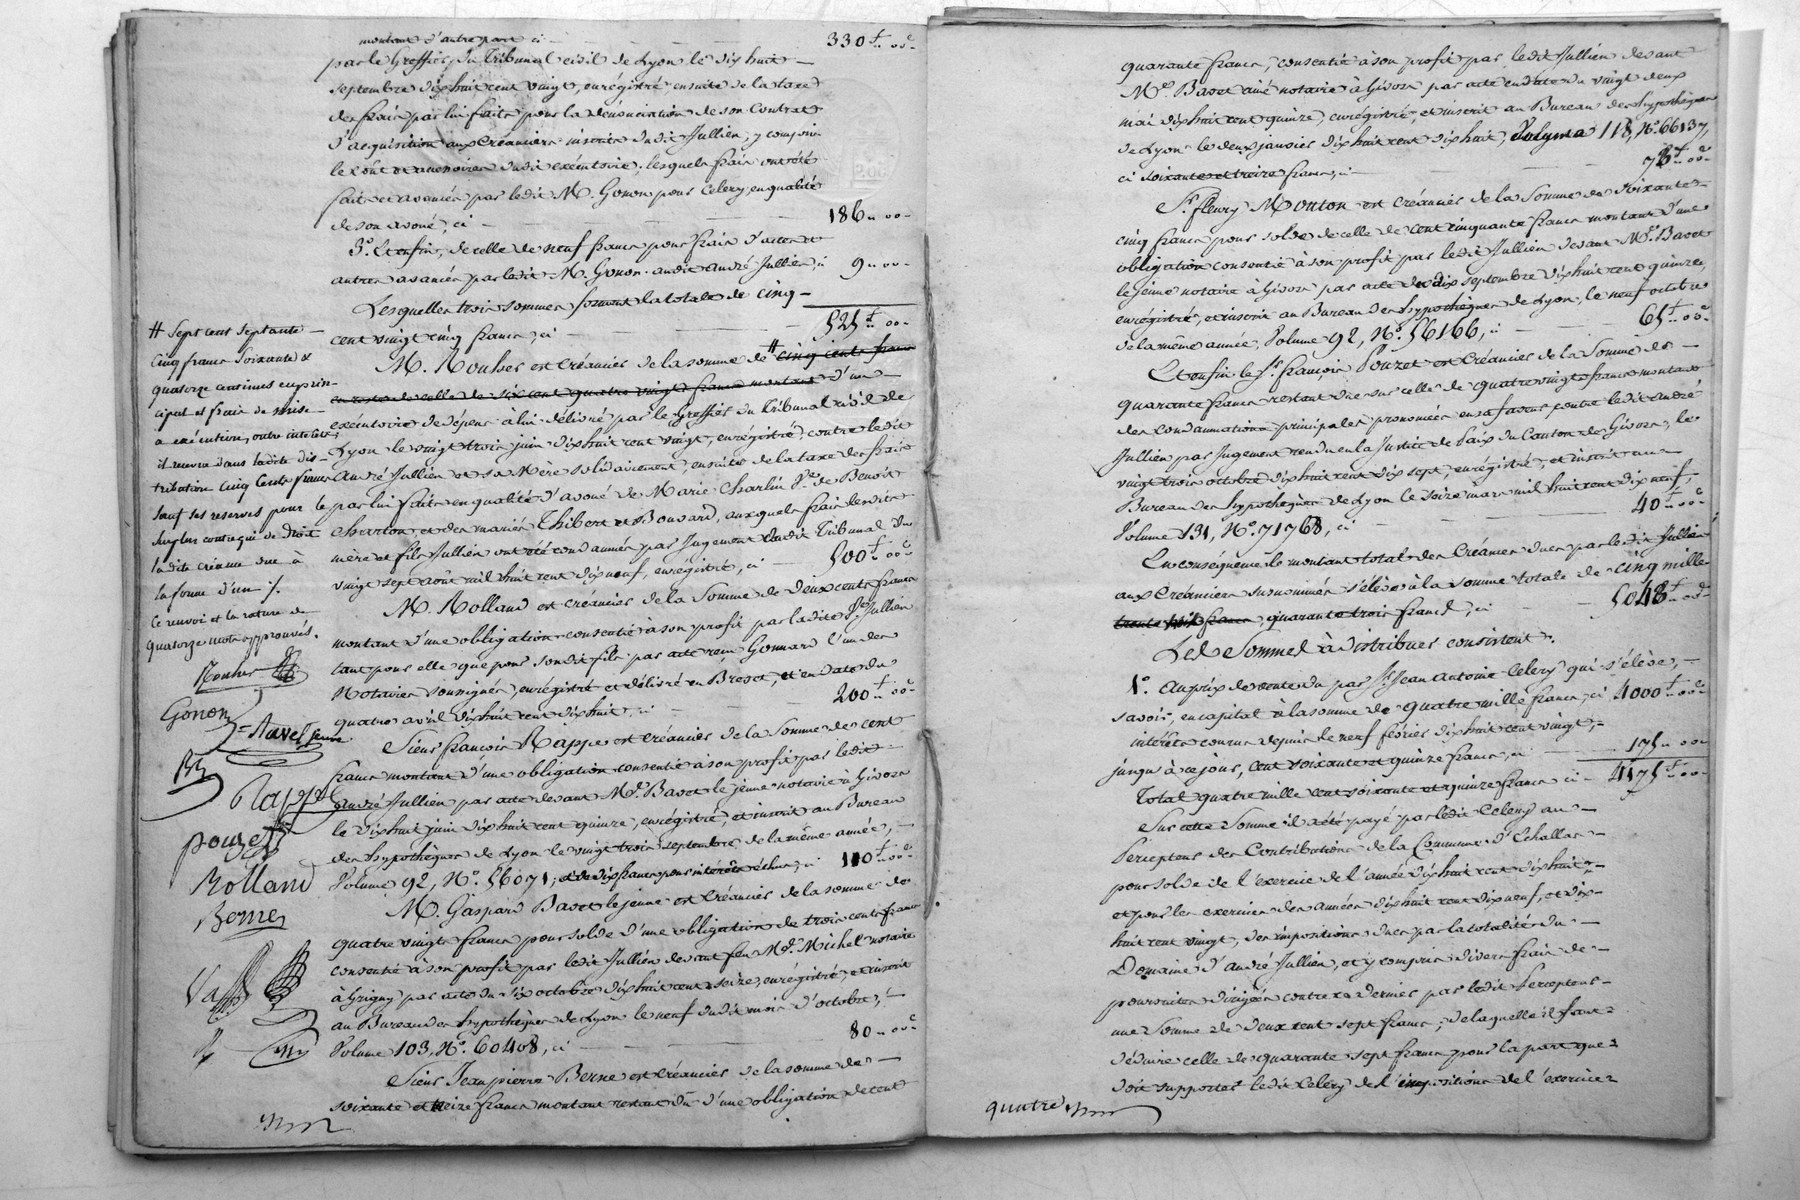 montant d'autre part ci 330 ₶ 00 c
par le Greffier du Tribunal civil de Lyon le dix huit
septembre dix huit cent vingt, enrégistré ensuite de la taxe
des frais par lui faits pour la dénonciation de son contrat
d'acquisition aux créanciers inscrits dudit Jullien, y compris
le coût et accessoires dudit exécutoire, lesquels frais ont été
faits et avancés par ledit M. Gonon pour Celery, en qualité
de son avoué, ci 186 .. 00
3.° Et enfin, de celle de neuf francs pour frais d'actes et
autres avancés par ledit M. Gonon audit André Jullien, ci 9 .. 00
Lesquelles trois sommes forment la totale de cinq
cent vingt cinq francs, ci 525 ₶ 00
M. Rouher est créancier de la somme de # cinq cents francs
en reste de celle de six cent quatre vingt francs montant d'un
exécutoire de dépens à lui délivré par le Greffier du Tribunal civil de
Lyon le vingt trois juin dix huit cent vingt, enrégistré, contre ledit
André Jullien et sa Mère solidairement, ensuite de la taxe des frais
par lui faits en qualité d'avoué de Marie Charlin V.e de Benoit
Charton, et des mariés Thibert et Bouvard, auxquels frais lesdits
mère et fils Jullien ont été condamnés par Jugement dudit Tribunal du
vingt sept août mil huit cent dix neuf, enrégistré, ci 500 ₶ 00 c
M. Rolland est créancier de la Somme de deux cents francs
montant d'une obligation consentie à son profit par ladite V.e Jullien
tant pour elle que pour sondit fils par acte reçu Gonnard l'un des
Notaires soussignés, enrégistré et délivré en Brevet, et en date du
quatre avril dix huit cent dix huit, ci 200 ₶ 00 c
Sieur François Rappe est créancier de la Somme de cent
francs montant d'une obligation consentie à son profit par ledit
André Jullien par acte devant M.e Bavet le jeune notaire à Givors
le dix huit juin dix huit cent quinze, enrégistré, et inscrit au Bureau
des hypothèques de Lyon le vingt trois septembre de la même année,
Volume 92, N.° 56071, et de dix francs pour intérêts échus, ci 110 ₶ 00 c
M. Gaspard Bavet le jeune est créancier de la somme de
quatre vingts francs pour solde d'une obligation de trois cents francs
consentie à son profit par ledit Jullien devant feu M.e Michel notaire
à Grigny par acte du six octobre dix huit cent seize, enrégistré, et inscrit
au Bureau des hypothèques de Lyon le neuf dudit mois d'octobre,
Volume 103, N.° 60408, ci 80 .. 00 c
Sieur Jean pierre Berne est créancier de la somme de
soixante et treize francs montant restant dû d'une obligation de cent
# Sept cent septante
cinq francs soixante &
quatorze centimes en prin-
cipal et frais de mise
a exécution, outre intérêts
il reuvra dans ladite dis-
tribution cinq cents francs
sauf ses reserves pour le
surplus contre qui de droit
ladite créance due à
la forme d'un /.
Ce renvoi et la rature de
quatorze mots approuvés.
Rouher
Gonon
Bavet jeune
Rappe
pouzet
Rolland
Berne
quarante francs, consentie à son profit par ledit Jullien devant
M.e Bavet ainé notaire à Givors par acte en date du vingt deux
mai dix huit cent quinze, enrégistré, et inscrit au Bureau des hypothèques
de Lyon le deux janvier dix huit cent dix huit, Volume 118, N.° 66137,
ci soixante et treize francs, ci 73 ₶ 00 c
S.r fleury Mouton est créancier de la Somme de soixante
cinq francs pour solde de celle de cent cinquante francs montant d'une
obligation consentie à son profit par ledit Jullien devant M.e Bavet
le jeune notaire à Givors par acte du dix septembre dix huit cent quinze,
enrégistré, et inscrit au Bureau des hypothèques de Lyon le neuf octobre
de la même année, Volume 92, N.° 56166, ci 65 ₶ 00 c
Et enfin le S.r françois Pouzet est créancier de la Somme de
quarante francs restant due sur celle de quatre vingts francs montant
des condamnations principales prononcées en sa faveur contre ledit André
Jullien par Jugement rendu en la Justice de Paix du Canton de Givors, le
vingt trois octobre dix huit cent dix sept, enrégistré, et inscrit au
Bureau des hypothèques de Lyon le seize mars mil huit cent dix neuf,
Volume 131, N.° 71768, ci 40 ₶ 00 c
En conséquence le montant total des Créances dues par ledit Jullien
aux Créanciers susnommés s'élève à la somme totale de cinq mille
trente huit francs, quarante trois francs, ci 5043 ₶ 00 c
Les Sommes à distribuer consistent.
1.° Au prix de vente dû par S.r Jean Antoine Celery qui s'élève,
savoir, en capital à la somme de quatre mille francs, ci 4000 ₶ 00 c
intérêts courus depuis le neuf février dix huit cent vingt,
jusqu'à ce jour, cent soixante et quinze francs, ci 175 .. 00
Total quatre mille cent soixante et quinze francs ci 4175 ₶ 00
Sur cette Somme il a été payé par ledit Celery au
Percepteur des Contributions de la Commune d'Echallas
pour solde de l'exercice de l'année dix huit cent dix huit
et pour les exercices des années dix huit cent dix neuf, et dix
huit cent vingt, des impositions dues par la totalité du
Domaine d'André Jullien, et y compris divers frais de
poursuites dirigées contre ce dernier par ledit Percepteur
une Somme de deux cent sept francs, de laquelle il faut
déduire celle de quarante sept francs pour la part que
doit supporter ledit Celery de l'imposition de l'exercice
quatre